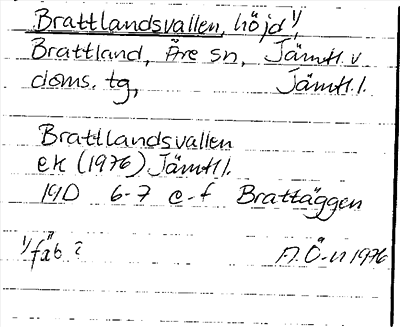 Brattlandsvallen, höjd 1/
Brattland, Åre sn, Jämtl. v
doms. tg, Jämtl. l.
Brattlandsvallen
ek (1976) Jämtl l.
19D 6-7 e-f Brattäggen
1/ fäb ?
A. Ö-n 1976